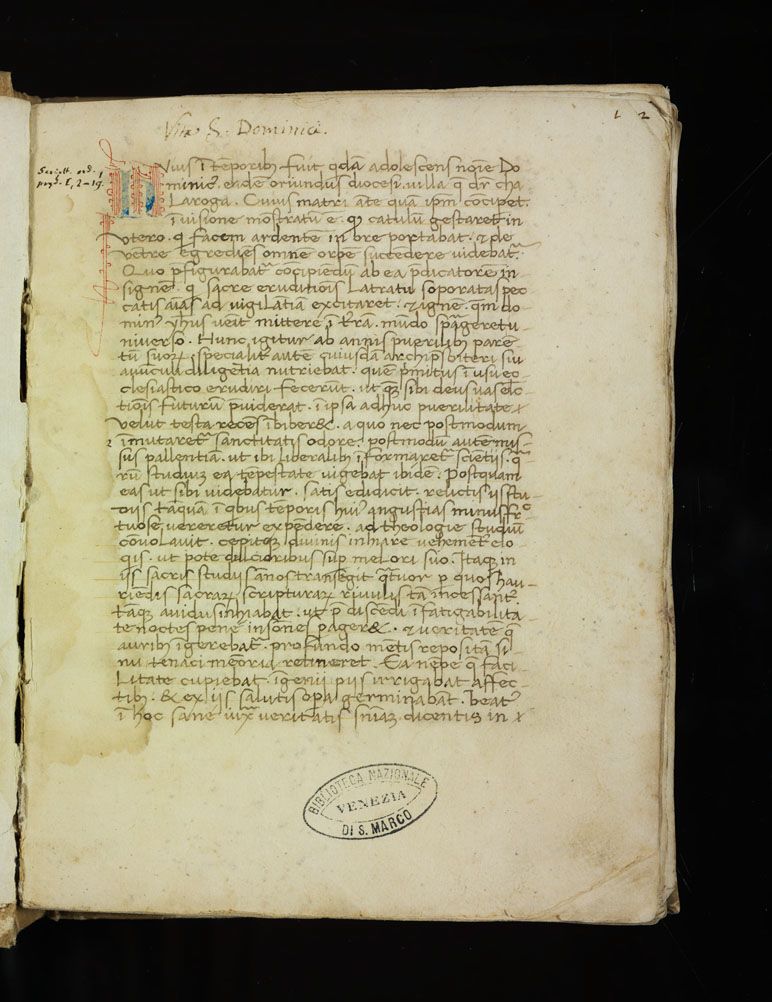 1 2
Vita S. Dominici.
Scriptt. ord.
pręd. I, 2-19.
Huius ī tēporibꝰ fuit qdā adolescens noīe Do
minicꝰ. eiusdē oriundus diocesi. villa q̄ dr̄ cha
Laroga. Cuius matri āte quā ip̄m cōcipet.
ī uisione mōstratū ē. catulū gestaret in
vtero. q̄ facem ardentē in ore portabat. ⁊ de
vētre egrediēs omnē orbē succēdere uidebat᷑.
Quo p̄figurabat᷑ cōcipiēdū ab ea p̄dicatorē in
signē. q̄ sacre eruditiōis Latratu soporatas pec
catis aīas ad vigilātiam excitaret. ⁊ ignē. quē do
minꝰ yhus uēit mittere ī t̄ra. mūdo spāgeret u
niuerso. Hunc igitur ab annis puerilibꝰ parē
tū suoꝝ. specialit᷑ autē cuiusdā archip̄sbiteri sui
auūculi diligētia nutriebat. quē p̄mitus ī usu ec
clesiastico erudiri fecerūt. ut qz sibi deus uas elec
tiōis futurū p̄uiderat. ī ipsa adhuc puerilitate
velut testa recēs ībiber&. a quo nec postmodum
īmutaret᷑ sanctitatis odorē. postmodū autē mis
sus pallentiam. ut ibi liberalibꝰ īformaret᷑ sciētiis. q̄
rū studiuz ea tēpestate vigebat ibidē. Postquam
eas ut sibi videbatur. satis edidicit. relictis iis stu
diis tāquā ī qbus tēporis huiꝰ angustias minus fruc
tuose vereretur expēdere. ad theologie studiū
cōuolauit. cepitqz diuinis inhiare vehemēt᷑ elo
qis. ut pote dulcioribus sup mel ori suo. Itaqz in
iis sacris studiis ānos transegit q̄tuor p quos hau
riēdis sacraꝝ scripturaꝝ riuulis tā incessant᷑
tāqz auidus inhiabat. ut p̄ discēdi īfatigabilita
te noctes pene insōnes pager&. ⁊ veritatē q̄
auribꝰ īgerebat᷑. profundo mētis repositā si
nu tenaci memoria retineret. Ea nēpe q̄ faci
Litate cupiebat. īgenii piis irrigabat affec
tibꝰ. & ex iis salutis opa germinabāt. Beatꝰ
ī hoc sane iuxᵃ veritatis sn̄iaz dicentis in
BIBLIOTECA NAZIONALE
VENEZIA
DI S. MARCO